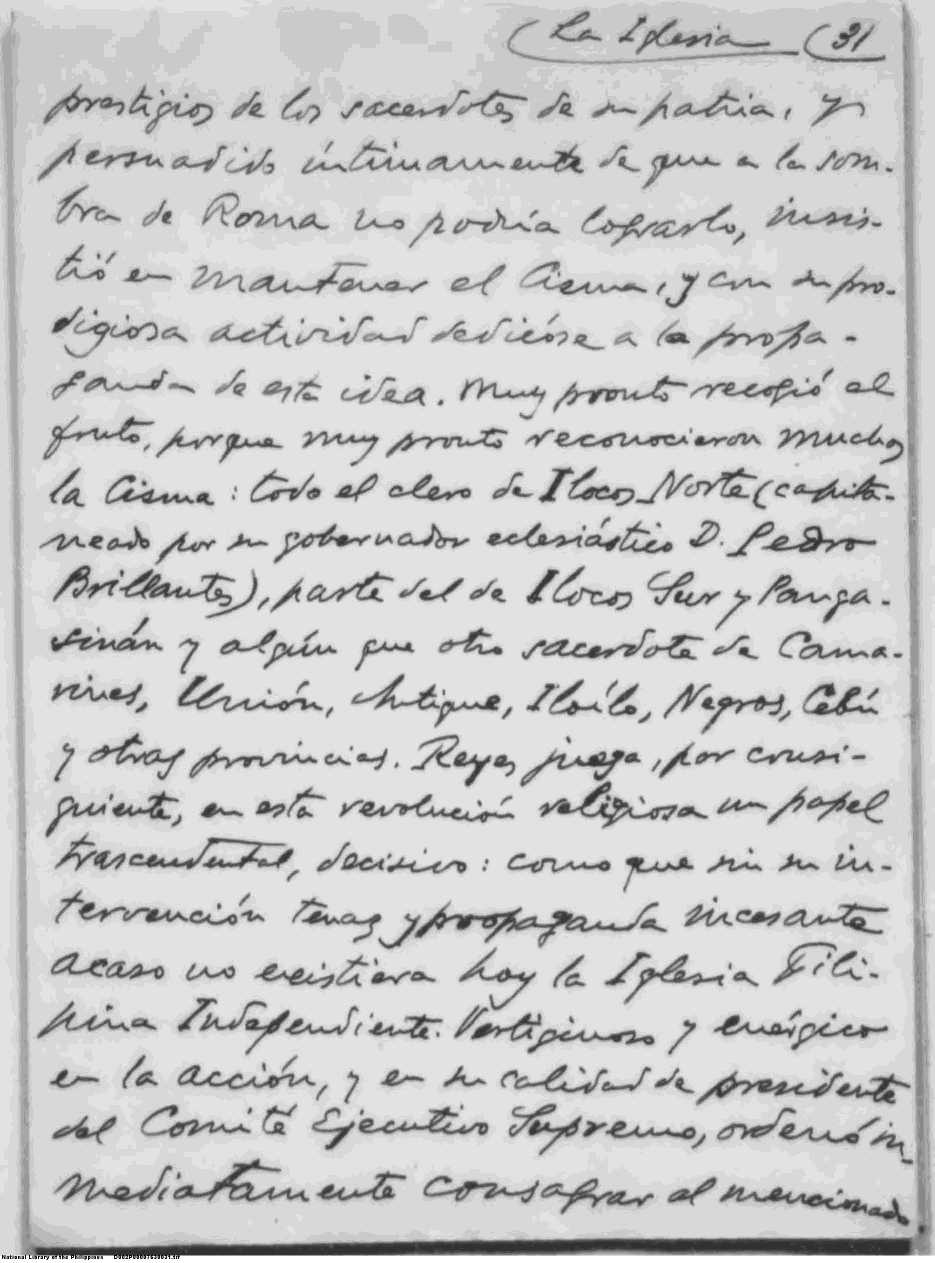 (La Iglesia (31
prestigios de los sacerdotes de su patria, y
persuadido íntimamente de que a la som-
bra de Roma no podría lograrlo, insis-
tió en mantener el Cisma, y con su pro-
digiosa actividad dedicóse a la propa-
ganda de esta idea. Muy pronto recogió el
fruto, porque muy pronto reconocieron muchos
la Cisma: todo el clero de Ilocos Norte (capita-
neado por su gobernador eclesiástico D. Pedro
Brillantes), parte del de Ilocos Sur y Panga-
sinán y algún que otro sacerdote de Cama-
rines, Unión, Antique, Iloílo, Negros, Cebú
y otras provincias. Reyes juega, por consi-
guiente, en esta revolución religiosa un papel
trascendental, decisivo: como que sin su in-
tervención tenaz y propaganda incesante
acaso no existiera hoy la Iglesia Fili-
pina Independiente. Vertiginoso y enérgico
en la acción, y en su calidad de presidente
del Comité Ejecutivo Supremo, ordenó in-
mediatamente consagrar al mencionado
National Library of the Philippines